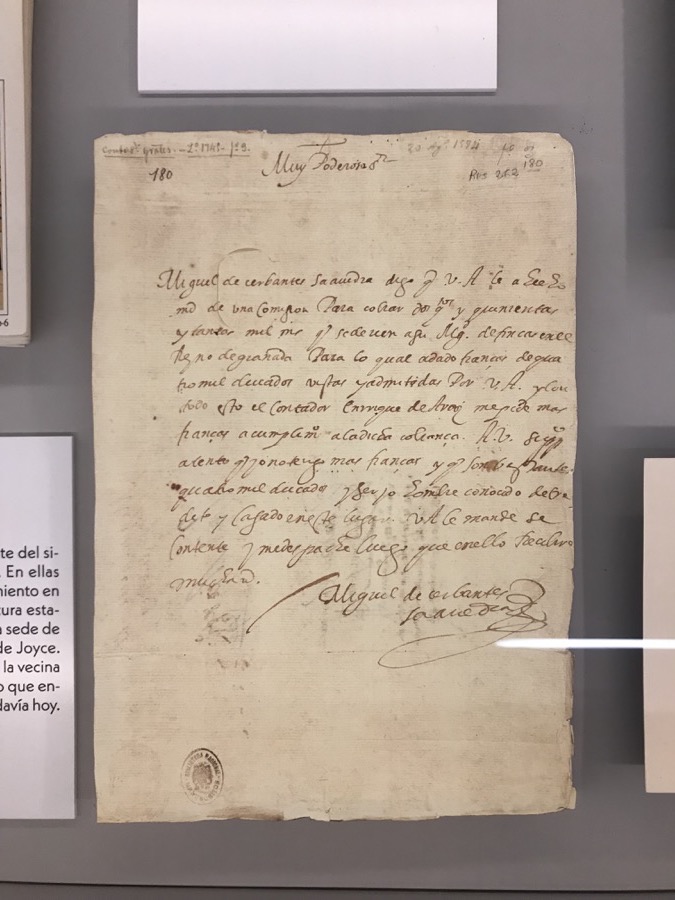 Muy Poderoso Sr
180
180
Miguel de cerbantes Saavedra digo q V. A. le a hecho
md de una Comision Para cobrar dos qos y quinientas
y tantas mil mrs q se deven a su Mg. de fincas en el
Reyno de granada Para lo qual a dado fianças de qua
tro mil ducados vistas y admitidas Por V.A. y con
todo esto el Contador Enrrique de Araiz me pide mas
fianças a cumplimo a la dicha cobrança. A V. A.
atento q yo no tengo mas fianças y q son bastante
quatro mil ducados y ser yo hombre conocido de cre
dito y casado en este lugar V A le mande se
Contente y me despache luego que en ello Recibire
Miguel de cerbantes
saavedra
te del si-
. En ellas
miento en
tura esta-
a sede de
de Joyce.
la vecina
o que en-
davía hoy.